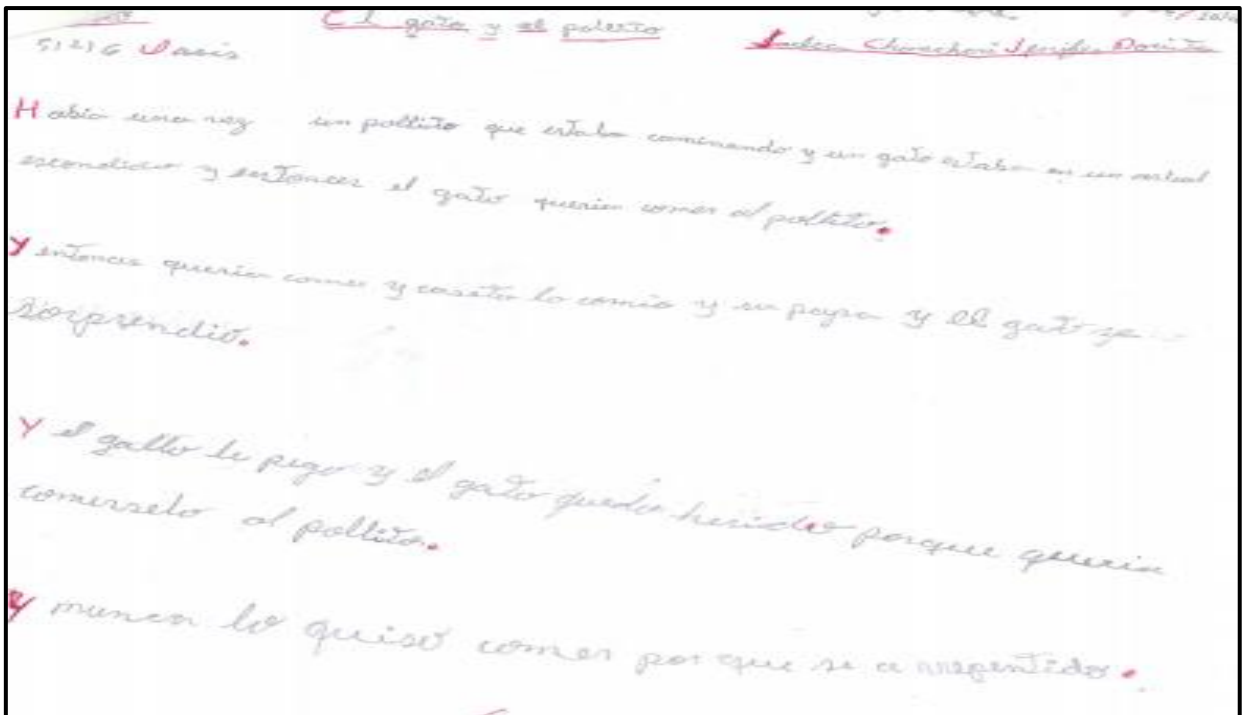 El gato y el polento
51216 Davis
Habia una vez un pollito que estaba caminando y un gato estaba en un
escondido y entonces el gato queria comer al pollito.
Y entonces queria comer y casito lo comio y su papa y el gato se
sorprendio.
Y el gallo le pego y el gato quedo herido porque queria
comerselo al pollito.
Y nunca lo quiso comer porque se a arrepentido.